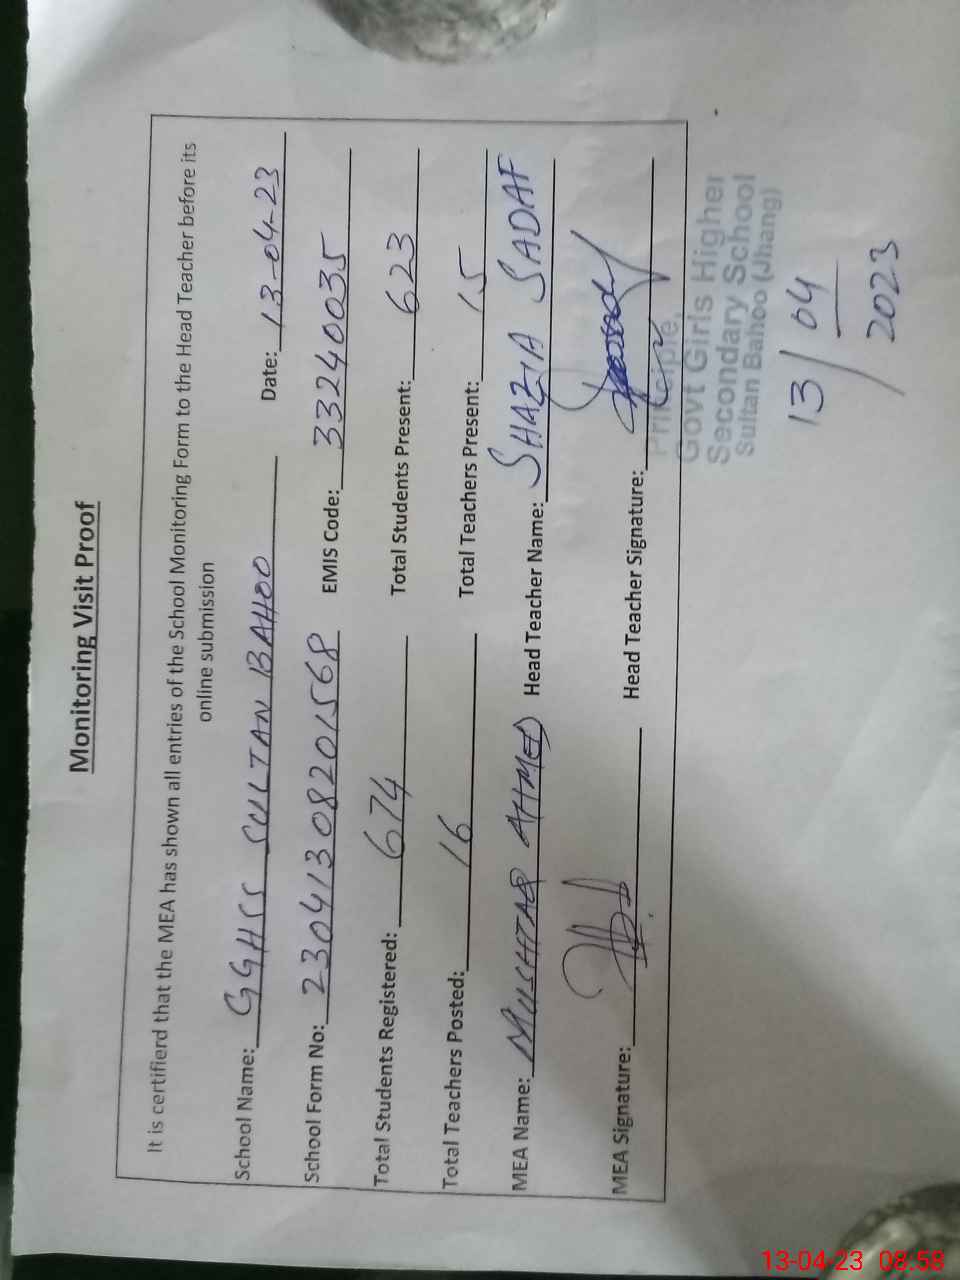 Monitoring Visit Proof
It is certifierd that the MEA has shown all entries of the School Monitoring Form to the Head Teacher before its
online submission
School Name: GGHSS SULTAN BAHOO Date: 13-04-23
School Form No: 230413082015 68 EMIS Code: 33240035
Total Students Registered: 674 Total Students Present: 623
Total Teachers Posted: 16 Total Teachers Present: 15
MEA Name: MUSHTAQ AHMED Head Teacher Name: SHAZIA SADAF
MEA Signature: Head Teacher Signature:
Principle,
Govt Girls Higher
Secondary School
Sultan Bahoo (Jhang)
13/04
2023
13-04-23 08:58